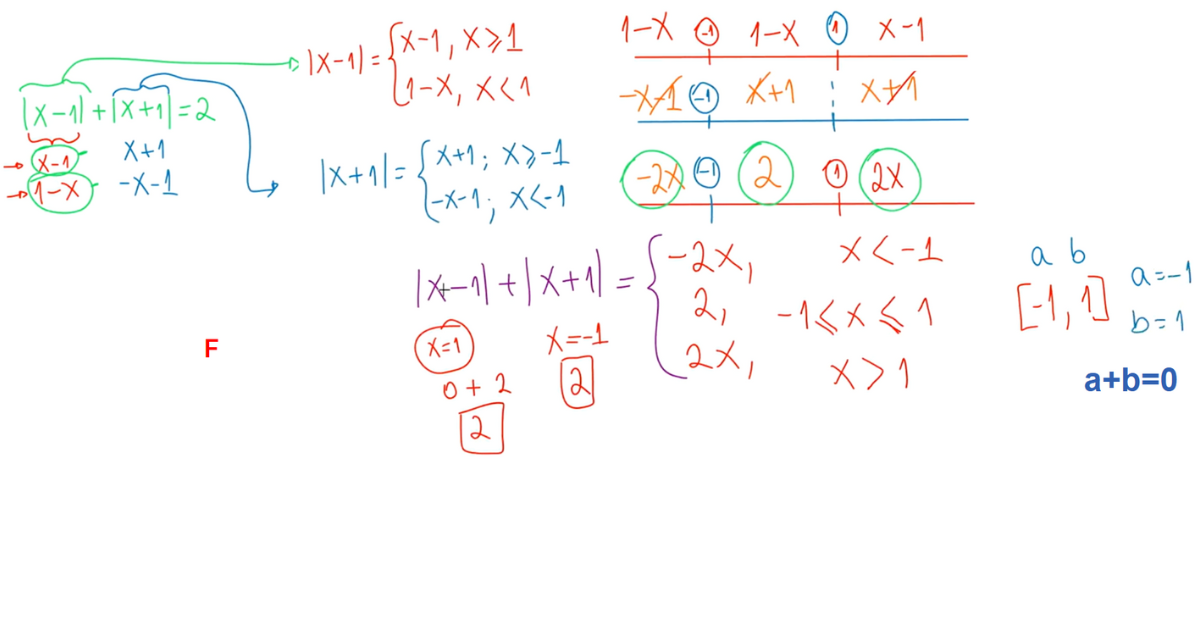 |x-1| + |x+1| = 2
x-1   x+1
1-x   -x-1
|x-1| = { x-1, x⩾1
1-x, x<1
|x+1| = { x+1; x⩾-1
-x-1; x<-1
1-x   -1   1-x   1   x-1
-x-1   -1   x+1   x+1
-2x   -1   2   1   2x
|x-1| + |x+1| = { -2x, x<-1
2, -1⩽x⩽1
2x, x>1
x=1   x=-1
0+2   2
2
a b
[-1, 1]
a=-1
b=1
a+b=0
F